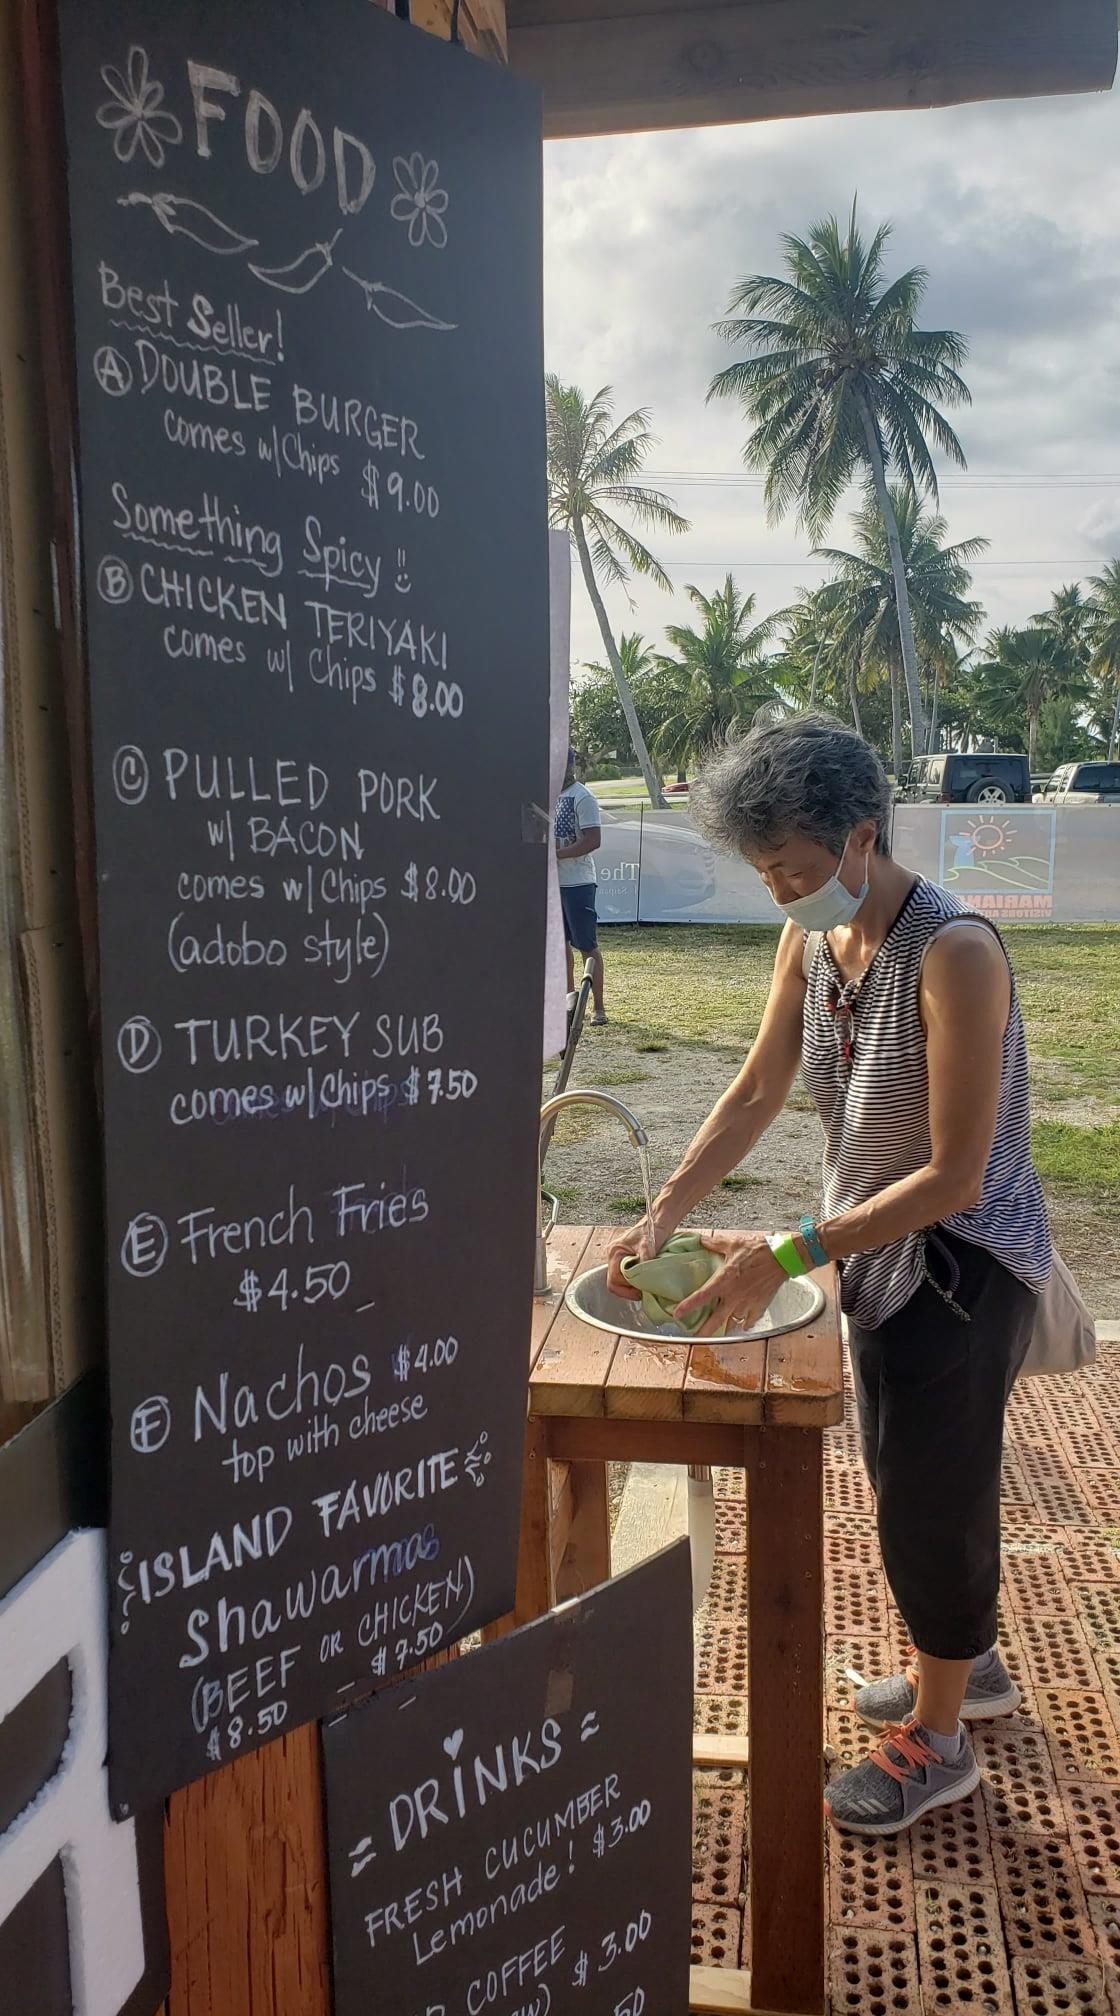 FOOD
Best Seller!
A DOUBLE BURGER
comes w/Chips $9.00
Something Spicy
B CHICKEN TERIYAKI
comes w/ Chips $8.00
C PULLED PORK
w/ BACON
comes w/Chips $8.00
(adobo style)
D TURKEY SUB
comes w/Chips $7.50
E French Fries
$4.50
F Nachos $4.00
top with cheese
ISLAND FAVORITE
Shawarmas
(BEEF OR CHICKEN)
$8.50 $7.50
DRINKS
FRESH CUCUMBER
Lemonade! $3.00
COFFEE
$3.00
50
The
MARIANA
VISITORS